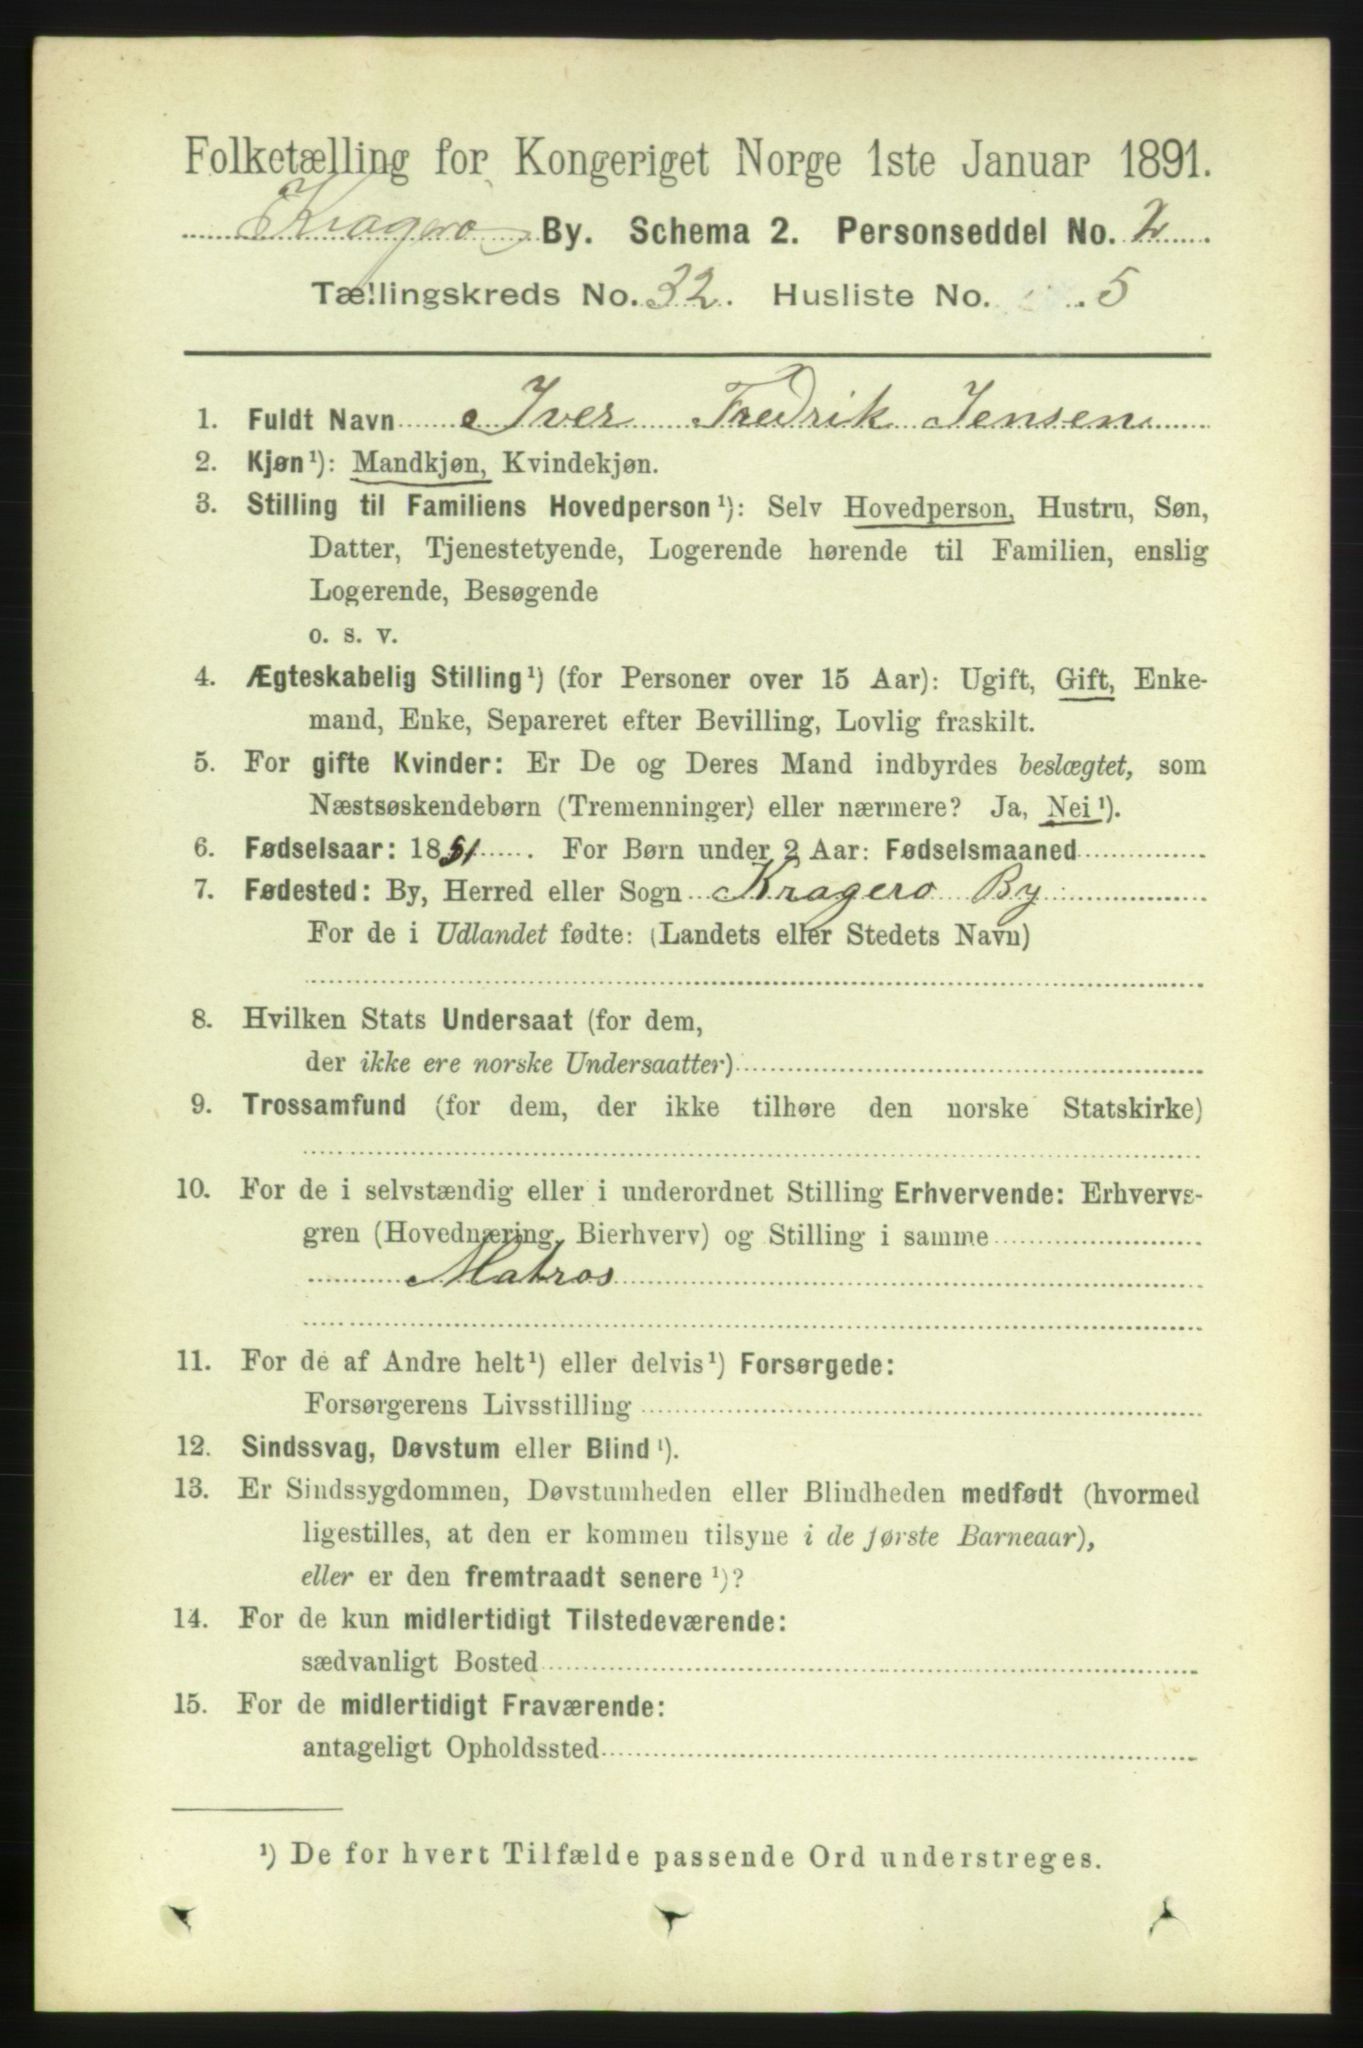 Folketælling for Kongeriget Norge 1ste Januar 1891.
Kragerø By. Schema 2. Personseddel No. 2
Tællingskreds No. 32. Husliste No. 5
1. Fuldt Navn Iver Fredrik Jensen
2. Kjøn¹): Mandkjøn, Kvindekjøn.
3. Stilling til Familiens Hovedperson¹): Selv Hovedperson, Hustru, Søn,
Datter, Tjenestetyende, Logerende hørende til Familien, enslig
Logerende, Besøgende
o. s. v.
4. Ægteskabelig Stilling¹) (for Personer over 15 Aar): Ugift, Gift, Enke-
mand, Enke, Separeret efter Bevilling, Lovlig fraskilt.
5. For gifte Kvinder: Er De og Deres Mand indbyrdes beslægtet, som
Næstsøskendebørn (Tremenninger) eller nærmere? Ja, Nei¹).
6. Fødselsaar: 1851. For Børn under 2 Aar: Fødselsmaaned
7. Fødested: By, Herred eller Sogn Kragerø By
For de i Udlandet fødte: (Landets eller Stedets Navn)
8. Hvilken Stats Undersaat (for dem,
der ikke ere norske Undersaatter)
9. Trossamfund (for dem, der ikke tilhøre den norske Statskirke)
10. For de i selvstændig eller i underordnet Stilling Erhvervende: Erhvervs-
gren (Hovednæring, Bierhverv) og Stilling i samme
Matros
11. For de af Andre helt¹) eller delvis¹) Forsørgede:
Forsørgerens Livsstilling
12. Sindssvag, Døvstum eller Blind¹).
13. Er Sindssygdommen, Døvstumheden eller Blindheden medfødt (hvormed
ligestilles, at den er kommen tilsyne i de første Barneaar),
eller er den fremtraadt senere¹)?
14. For de kun midlertidigt Tilstedeværende:
sædvanligt Bosted
15. For de midlertidigt Fraværende:
antageligt Opholdssted
¹) De for hvert Tilfælde passende Ord understreges.